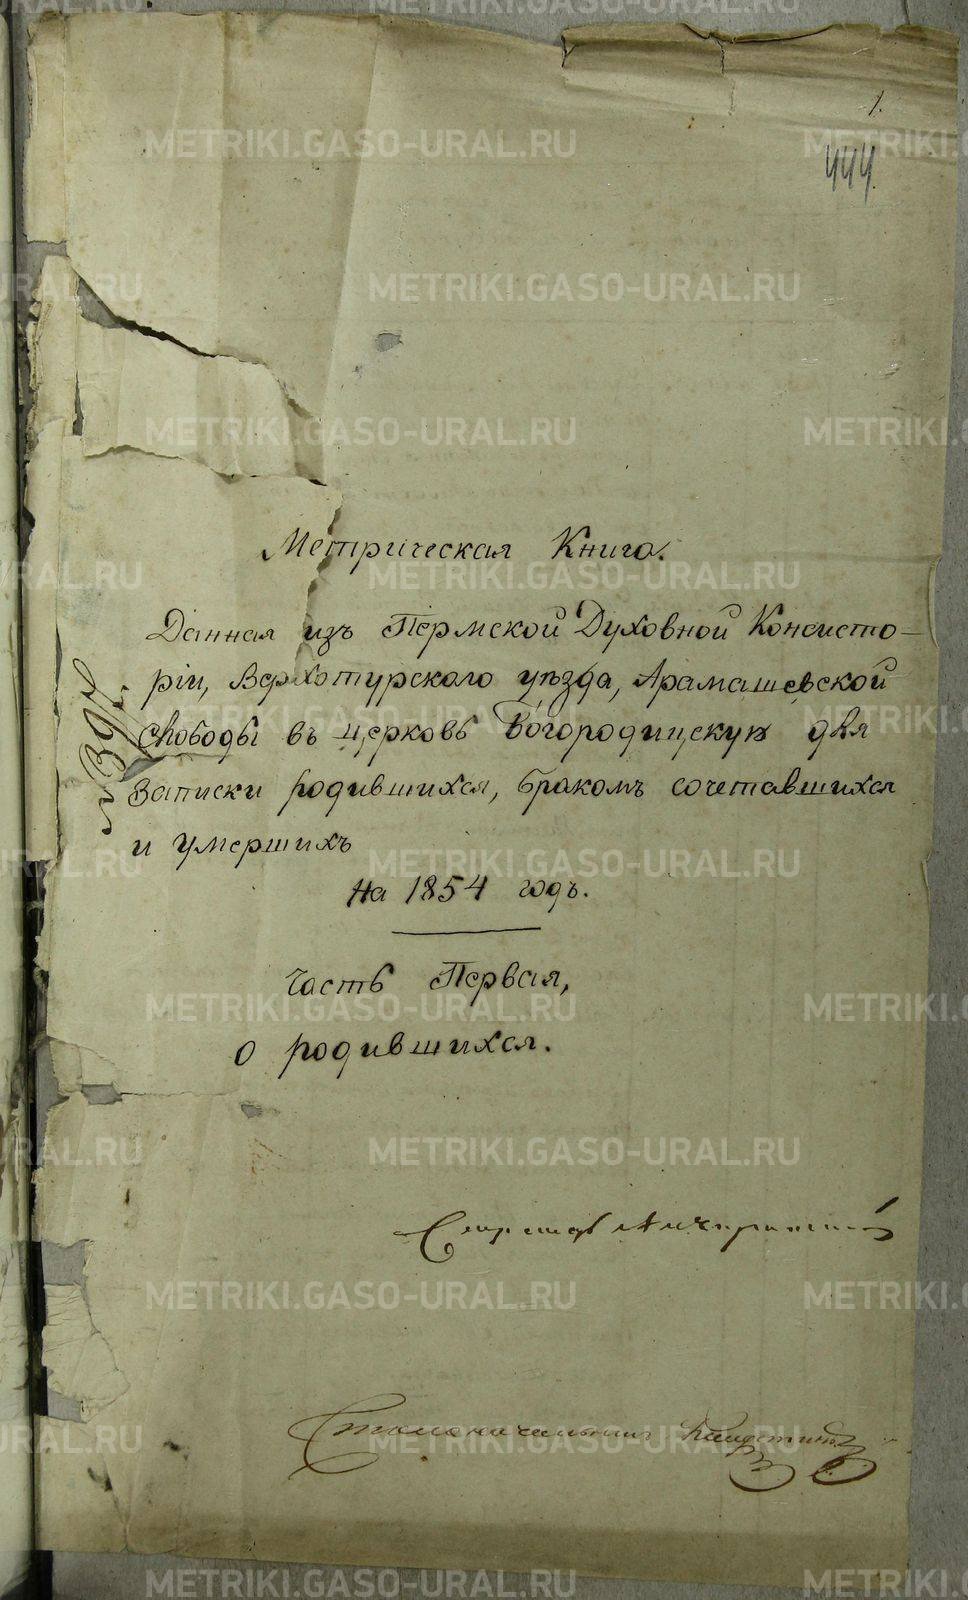 1.
444.
Метрическая Книга.
Данная изъ Пермской Духовной Консисто-
ріи, Верхотурскаго уѣзда, Арамашевской
слободы въ церковь Богородицкую для
записки родившихся, бракомъ сочетавшихся
и умершихъ
на 1854 годъ.
Часть Первая,
О родившихся.
Секретарь
Столоначальникъ
METRIKI.GASO-URAL.RU